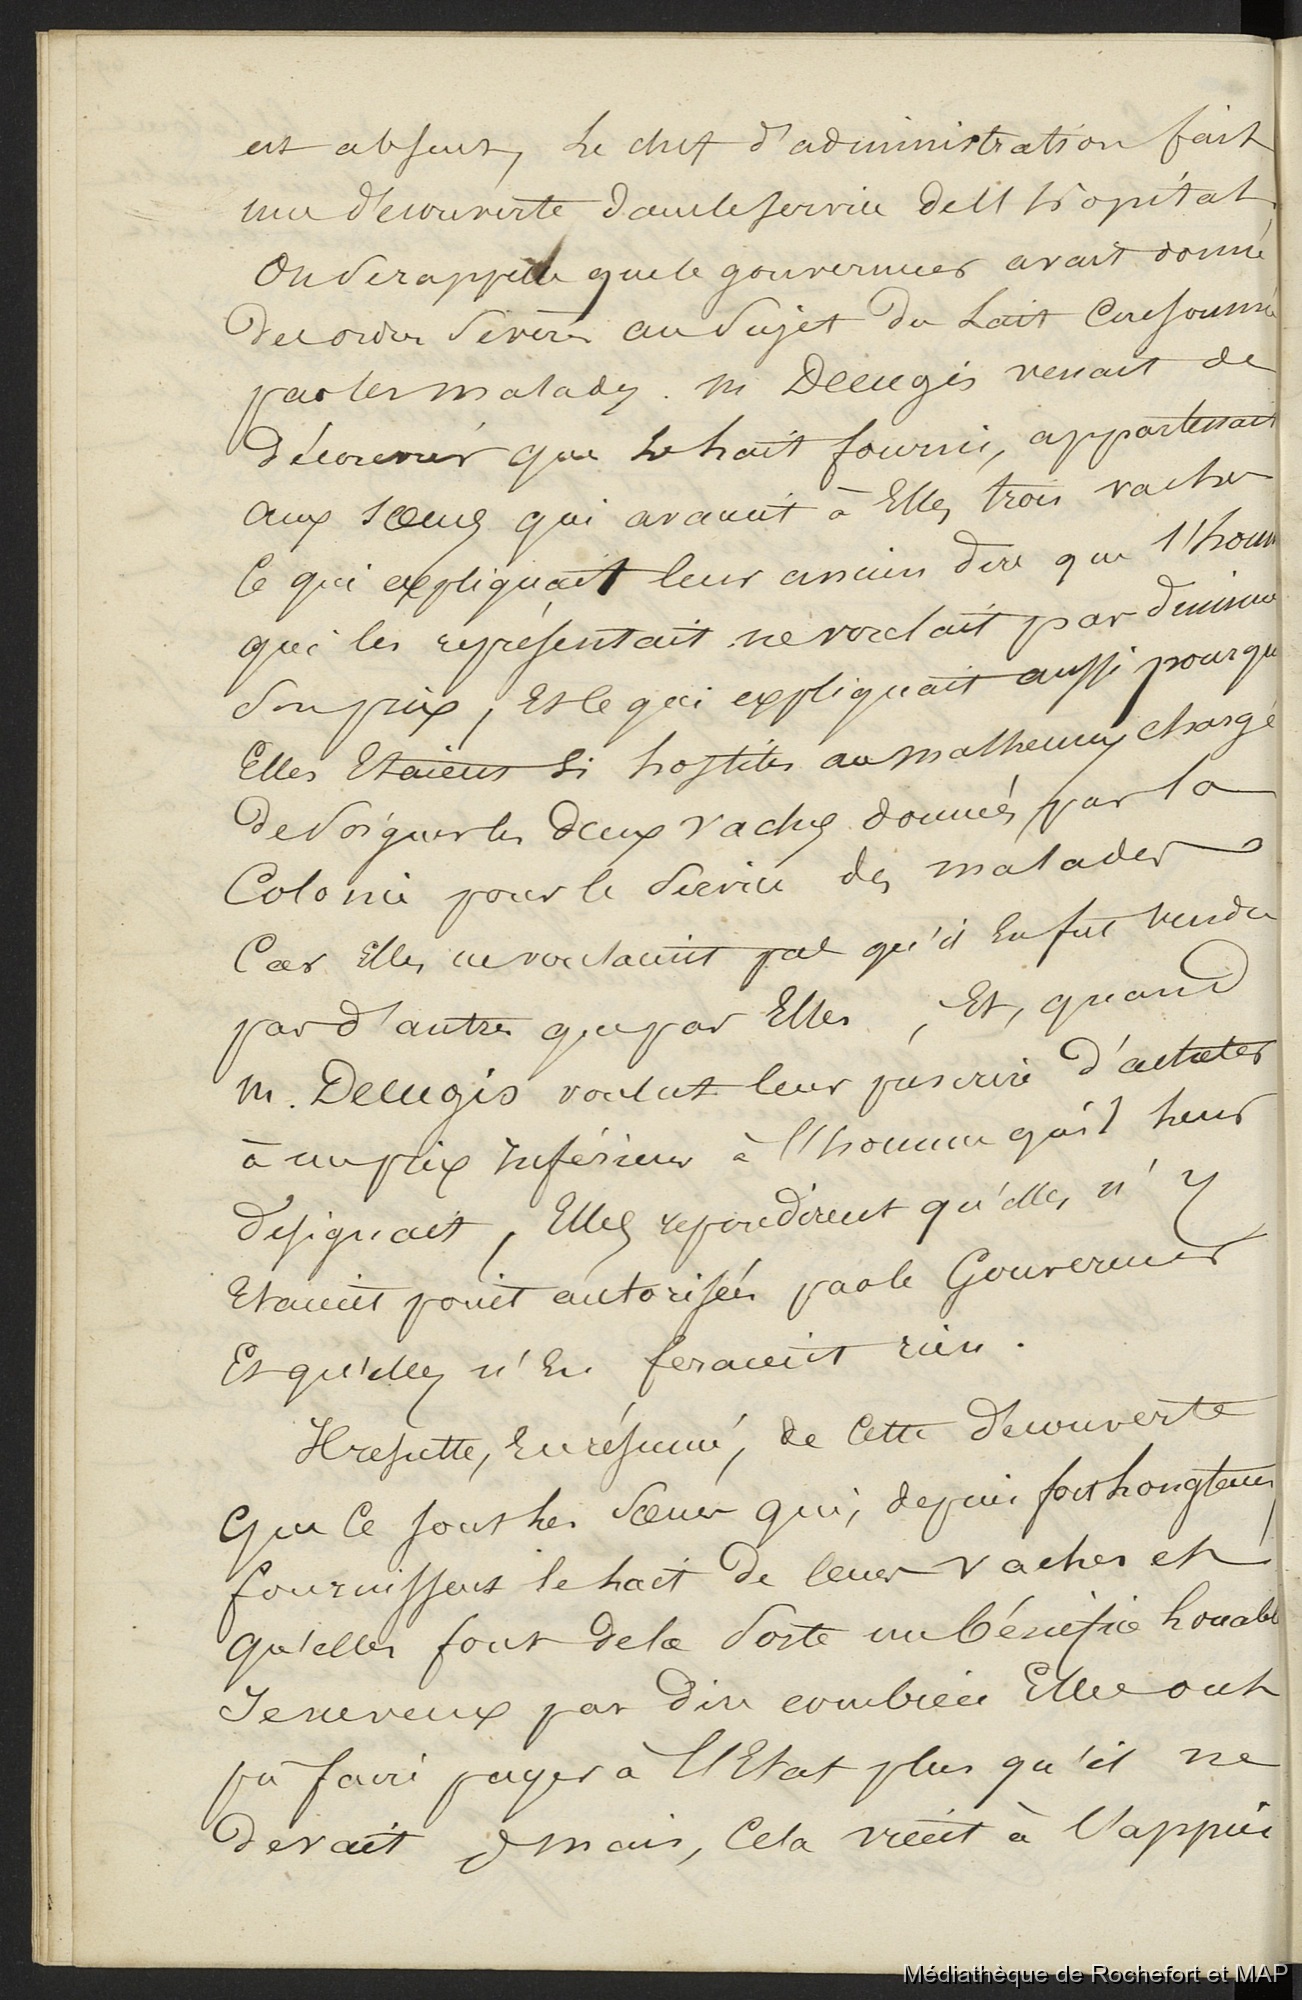 est absent, Le chef d'administration fait
une découverte dans le service de l'hopital,
On se rappelle que le gouverneur avait donné
des ordres sévères au sujet du Lait consommé
par les malades. M Delugis venait de
découvrir que le Lait fourni, appartenait
aux sœurs qui avaient à Elles trois vaches
Ce qui expliquait leur ancien dire que l'homme
qui les représentait ne voulait pas diminuer
son prix, Et ce qui expliquait aussi pourquoi
Elles Etaient si hostiles au malheureux chargé
de soigner les deux vaches données par la
Colonie pour le service des malades
Car Elles ne voulaient pas qu'il En fut vendu
par d'autres que par Elles, Et, quand
M. Delugis voulut leur prescrire d'acheter
à un prix inférieur à l'homme qu'il leur
désignait, Elles repondirent qu'elles n'y
Etaient point autorisées par le Gouverneur
Et qu'elles n'En feraient rien.
Il resulte, En résumé, de Cette découverte
Que Ce sont les sœurs qui, depuis fort Longtems,
fournissent le Lait de leurs vaches et
qu'elles font de la sorte un bénéfice Louable
Je ne veux pas dire combien Elles ont
pu faire payer à l'Etat plus qu'il ne
devait mais, Cela vient à l'appui
Médiathèque de Rochefort et MAP